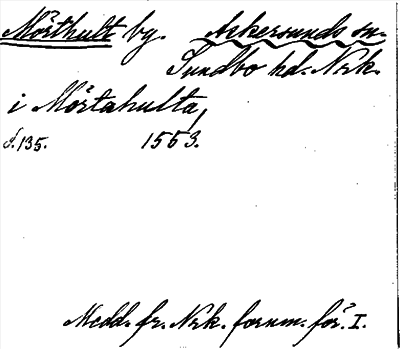 Mörthult by. Askersunds sn.
Sundbo hd. Nrk.
i Mörtahulta,
s. 135. 1553.
Medd. fr. Nrk. fornm. för. I.